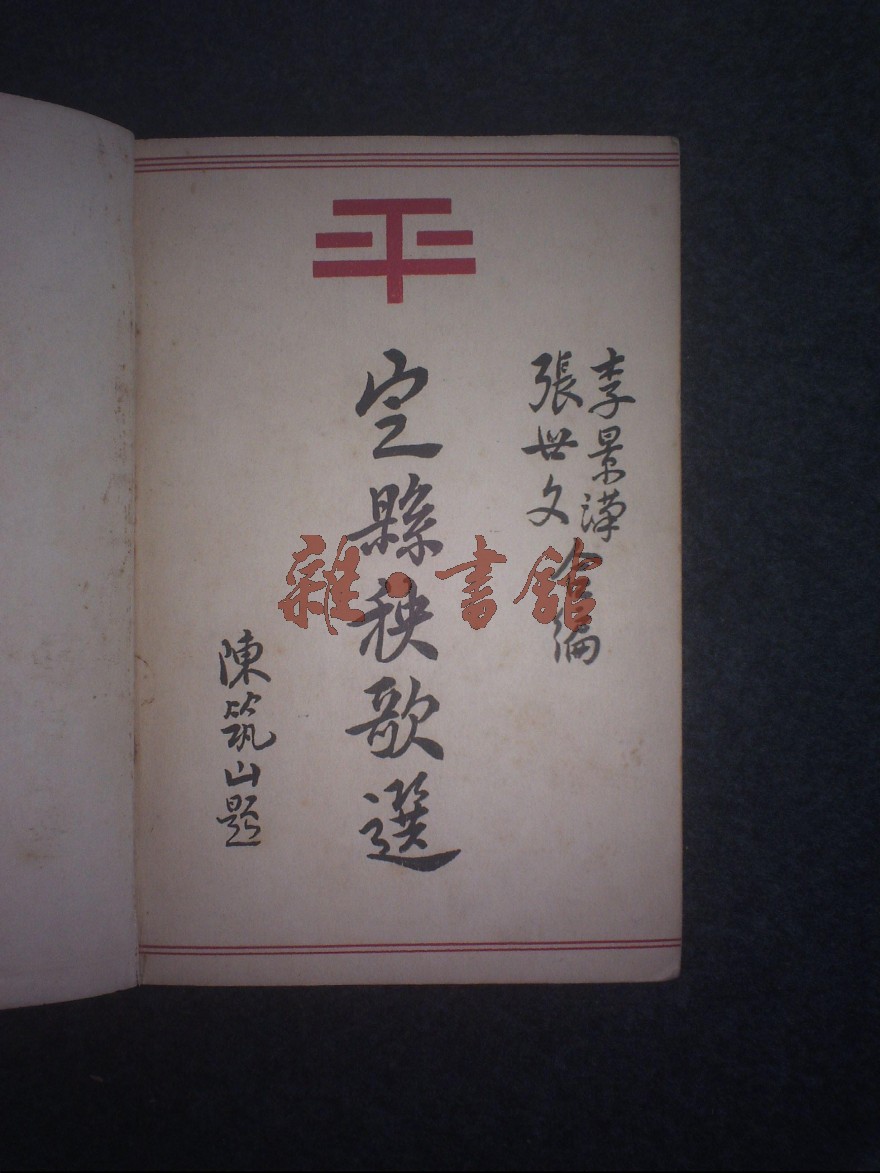 平
李景漢
張世文
合編
定縣秧歌選
陳筑山題
雜·書館